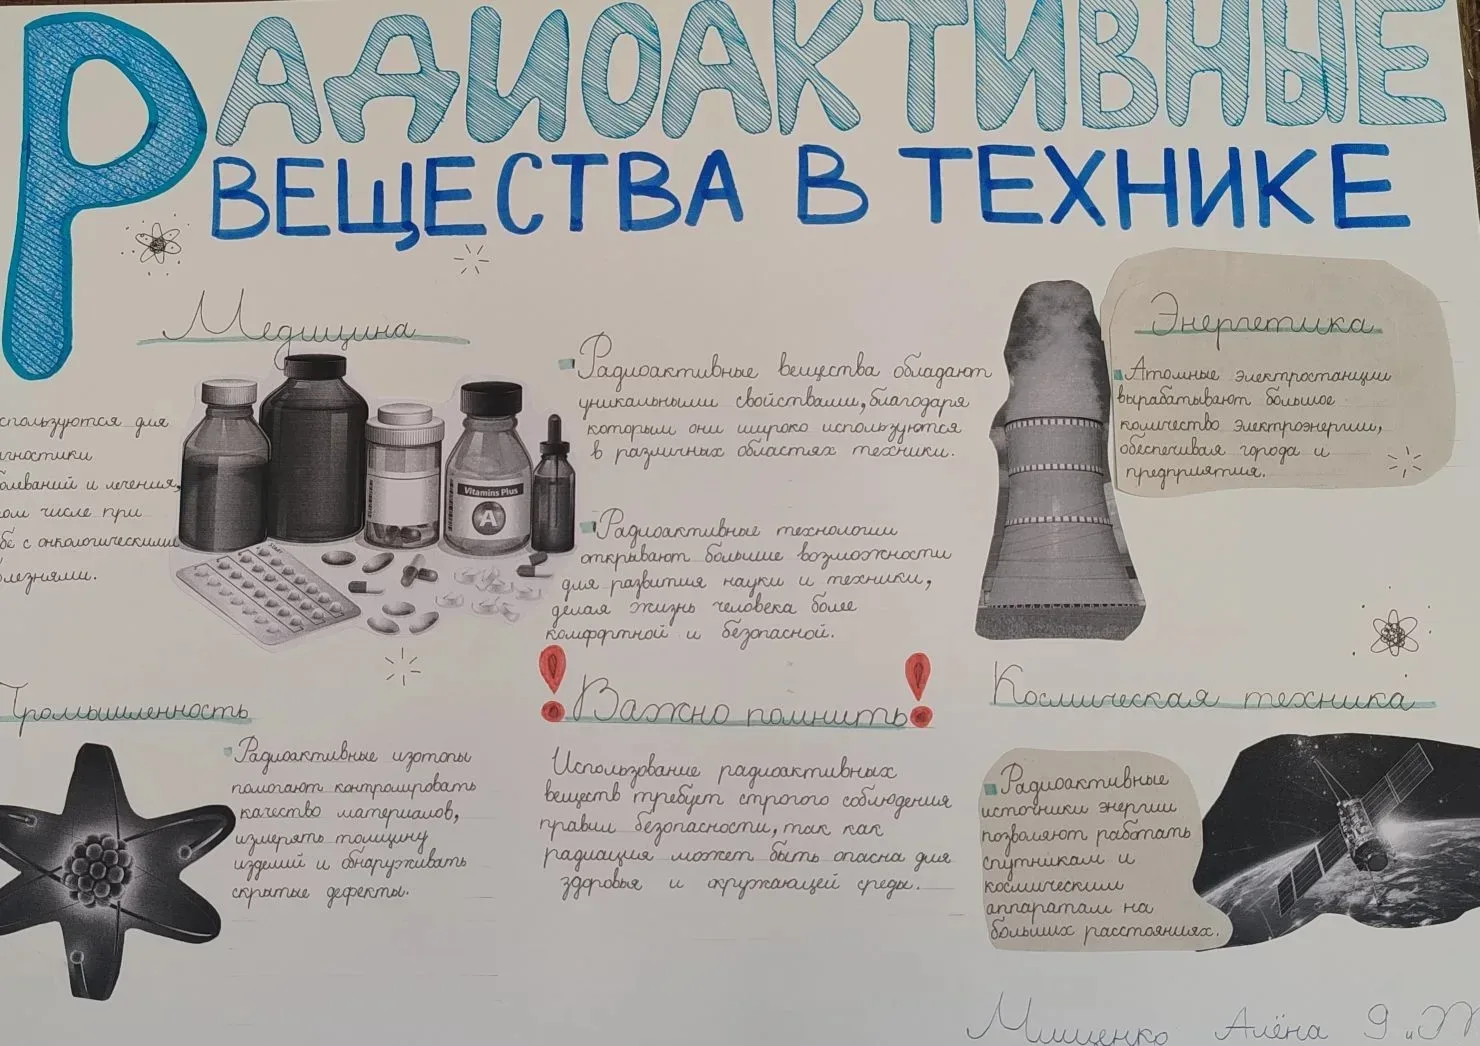 РАДИОАКТИВНЫЕ
ВЕЩЕСТВА В ТЕХНИКЕ
Медицина
спользуются для
гностики
олеваний и лечения,
ом числе при
бе с онкологическими
лезнями.
Vitamins Plus
A
Радиоактивные вещества обладают
уникальными свойствами, благодаря
которым они широко используются
в различных областях техники.
Радиоактивные технологии
открывают большие возможности
для развития науки и техники,
делая жизнь человека более
комфортной и безопасной.
Энергетика
Атомные электростанции
вырабатывают большое
количество электроэнергии,
обеспечивая города и
предприятия.
Промышленность
Радиоактивные изотопы
помогают контролировать
качество материалов,
измерять толщину
изделий и обнаруживать
скрытые дефекты.
! Важно помнить !
Использование радиоактивных
веществ требует строгого соблюдения
правил безопасности, так как
радиация может быть опасна для
здоровья и окружающей среды.
Космическая техника
Радиоактивные
источники энергии
позволяют работать
спутникам и
космическим
аппаратам на
больших расстояниях.
Мищенко Алёна 9